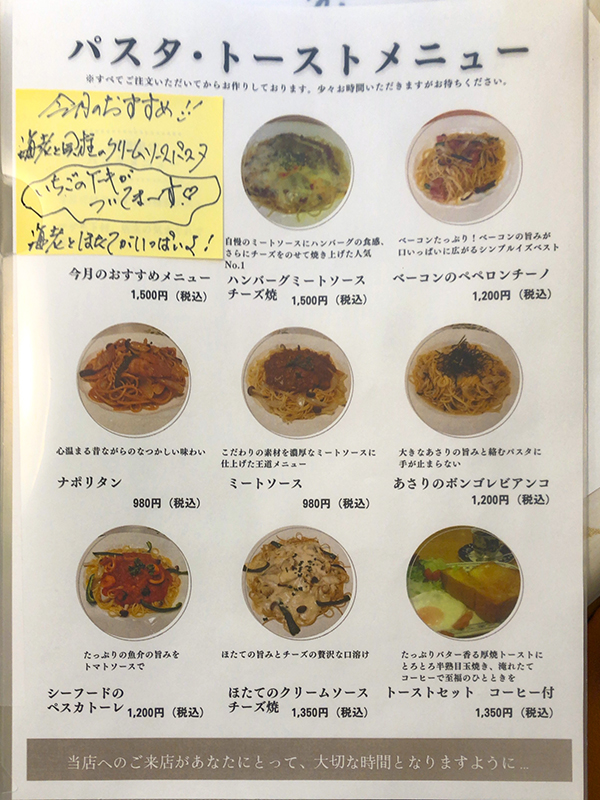 パスタ・トーストメニュー
※すべてご注文いただいてからお作りしております。少々お時間いただきますがお待ちください。
今月のおすすめ!!
海老と帆立のクリームソースパスタ
いちごのケーキが
ついてま〜す♡
海老とほたてがいっぱいよ!
今月のおすすめメニュー
1,500円（税込）
自慢のミートソースにハンバーグの食感、
さらにチーズをのせて焼き上げた人気
No.1
ハンバーグミートソース
チーズ焼 1,500円（税込）
ベーコンたっぷり！ベーコンの旨みが
口いっぱいに広がるシンプルイズベスト
ベーコンのペペロンチーノ
1,200円（税込）
心温まる昔ながらのなつかしい味わい
ナポリタン
980円（税込）
こだわりの素材を濃厚なミートソースに
仕上げた王道メニュー
ミートソース
980円（税込）
大きなあさりの旨みと絡むパスタに
手が止まらない
あさりのボンゴレビアンコ
1,200円（税込）
たっぷりの魚介の旨みを
トマトソースで
シーフードの
ペスカトーレ 1,200円（税込）
ほたての旨みとチーズの贅沢な口溶け
ほたてのクリームソース
チーズ焼 1,350円（税込）
たっぷりバター香る厚焼トーストに
とろとろ半熟目玉焼き、淹れたて
コーヒーで至福のひとときを
トーストセット コーヒー付
1,350円（税込）
当店へのご来店があなたにとって、大切な時間となりますように...